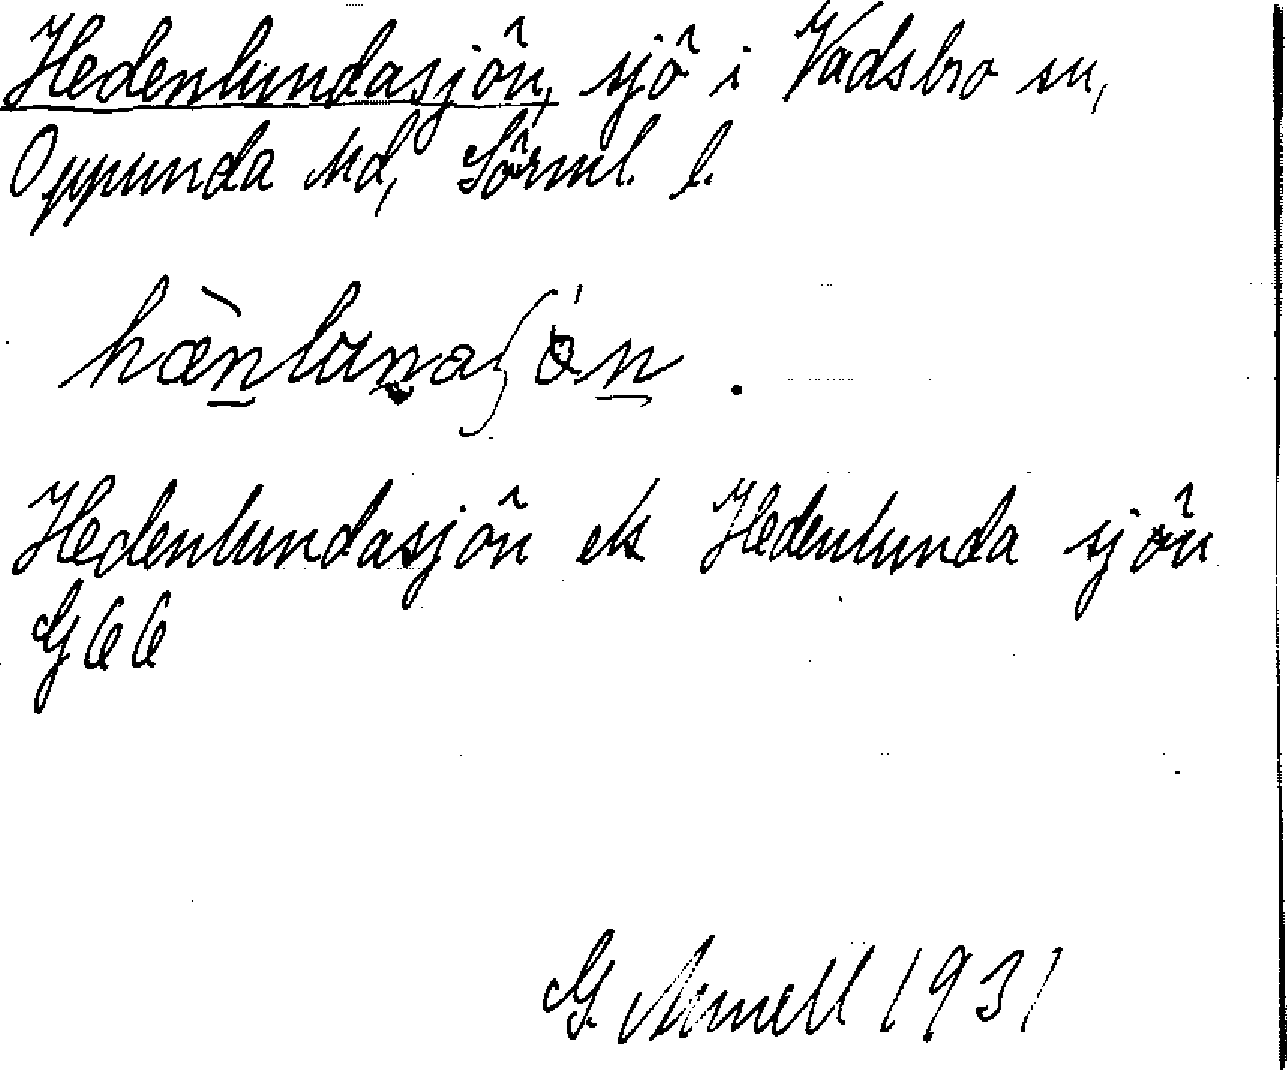 Hedenlundasjön, sjö i Vadsbro sn,
Oppunda hd, Sörml. l.
hæ̀nlunaʃö́n.
Hedenlundasjön ek Hedenlunda sjön
G66
G. Annell 1931